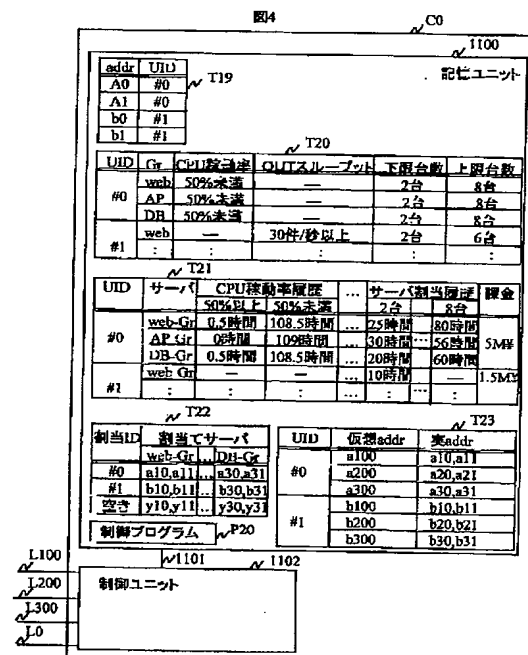 図4
C0
1100
記憶ユニット
addr UID
A0 #0
A1 #0
b0 #1
b1 #1
T19
T20
UID Gr CPU稼動率 OUTスループット 下限台数 上限台数
#0 web 50%未満 — 2台 8台
AP 50%未満 — 2台 8台
DB 50%未満 — 2台 8台
#1 web — 30件/秒以上 2台 6台
: : : : :
T21
UID サーバ CPU稼動率履歴 … サーバ割当履歴 課金
50%以上 50%未満 2台 8台
#0 web-Gr 0.5時間 108.5時間 … 25時間 … 80時間 5M¥
AP-Gr 0時間 109時間 … 30時間 … 56時間
DB-Gr 0.5時間 108.5時間 … 20時間 60時間
#1 web Gr — — … 10時間 — 1.5M¥
: : : … : … :
T22
割当ID 割当てサーバ
web-Gr … DB-Gr
#0 a10,a11 … a30,a31
#1 b10,b11 … b30,b31
空き y10,y11 … y30,y31
制御プログラム P20
T23
UID 仮想addr 実addr
#0 a100 a10,a11
a200 a20,a21
a300 a30,a31
#1 b100 b10,b11
b200 b20,b21
b300 b30,b31
1101
1102
制御ユニット
L100
L200
L300
L0